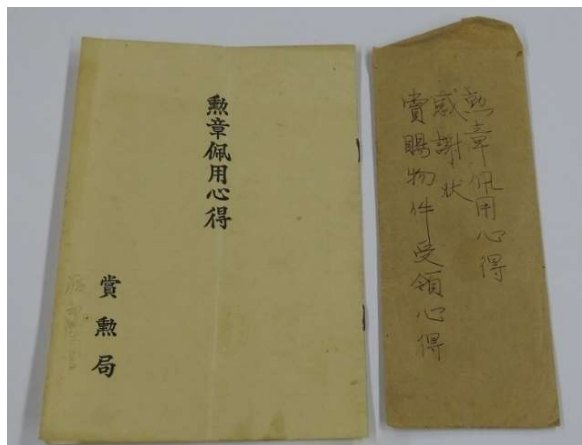 勲章佩用心得
賞勲局
勲章佩用心得
感謝状
賞賜物件受領心得